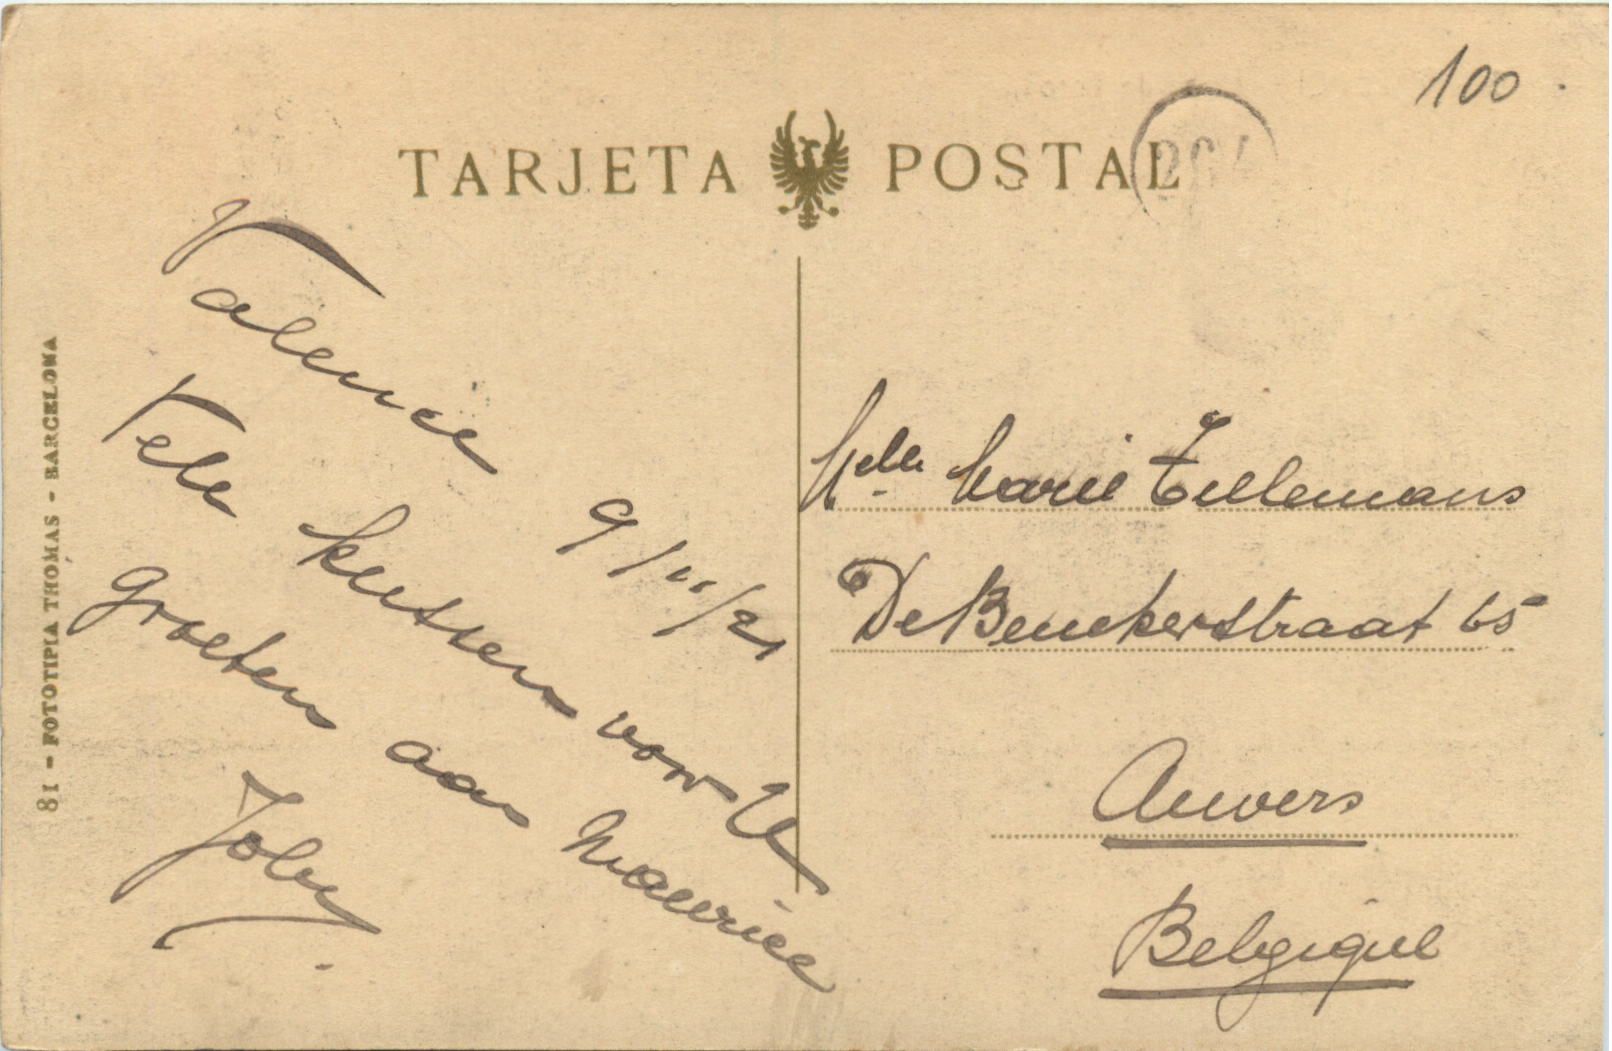 TARJETA POSTAL
100
Valencie
9/11/21
Vele kussen voor U
Groeten aan Maurice
Joby
Melle Marie Tillemans
De Beuckerstraat 65
Anvers
Belgique
81 - FOTOTIPIA THOMAS - BARCELONA